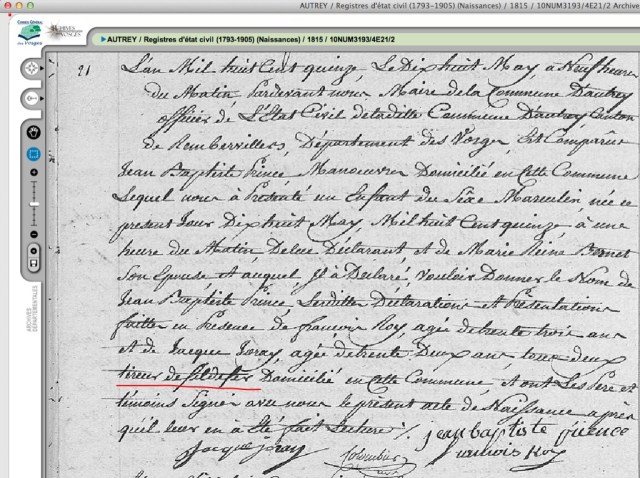 AUTREY / Registres d'état civil (1793-1905) (Naissances) / 1815 / 10NUM3193/4E21/2 Archive
CONSEIL GÉNÉRAL des Vosges
ARCHIVES VOSGES
AUTREY / Registres d'état civil (1793-1905) (Naissances) / 1815 / 10NUM3193/4E21/2
ARCHIVES DÉPARTEMENTALES
21
L'an Mil huit Cent quinze, Le Dix huit May, à Neuf heure
du Matin Pardevant nous Maire de la Commune D'autrey
officier de L'État Civil de laditte Commune D'autrey, Canton
de Rembervillers, Département des Vosges, Est Comparut
Jean Baptiste Prince, Manoeuvre Domicilié en Cette Commune
Lequel nous à Présenté un Enfant du Séxe Masculin, née ce
present Jour Dix huit May, Mil huit Cent quinze, à une
heure du Matin, De luc Déclarant et de Marie Reine
Son Epouse et auquel Il à Déclaré, vouloir Donner le Nom de
Jean Baptiste Prince, Lesditte Déclarations et Présentations
faittes en Presence de francois Roy, agée de trente trois ans
et de Jacque Joray, agée de trente Deux ans, tous deux
tireur de fil de fer Domicilié en Cette Commune, et ont Les Père et
témoins Signée avec nous le présent acte de Naissance après
quel leur en à Eté fait Lecture /.
jean baptiste prience
Jacque joray
Colombier
francois Roy